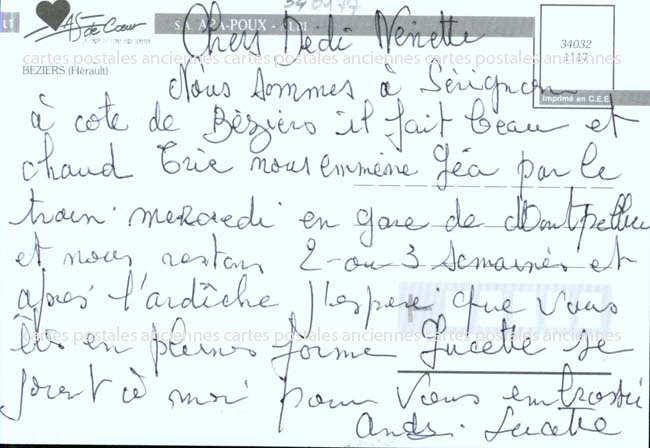 As de Cœur
S.A. APA-POUX - ALBI
BEZIERS (Hérault)
34032
1117
Imprimé en C.E.E
Chers Dédé Nénette
Nous sommes à Sérignan
à cote de Béziers il fait beau et
chaud Eric nous emmène Géa par le
train mercredi en gare de Montpellier
et nous restons 2 ou 3 semaines et
après l'ardèche J'espère que vous
êtes en pleines forme Lucette se
joint à moi pour vous embrasser
André. Lucette
cartes postales anciennes cartes postales anciennes cartes postales anciennes
cartes postales anciennes cartes postales anciennes cartes postales anciennes